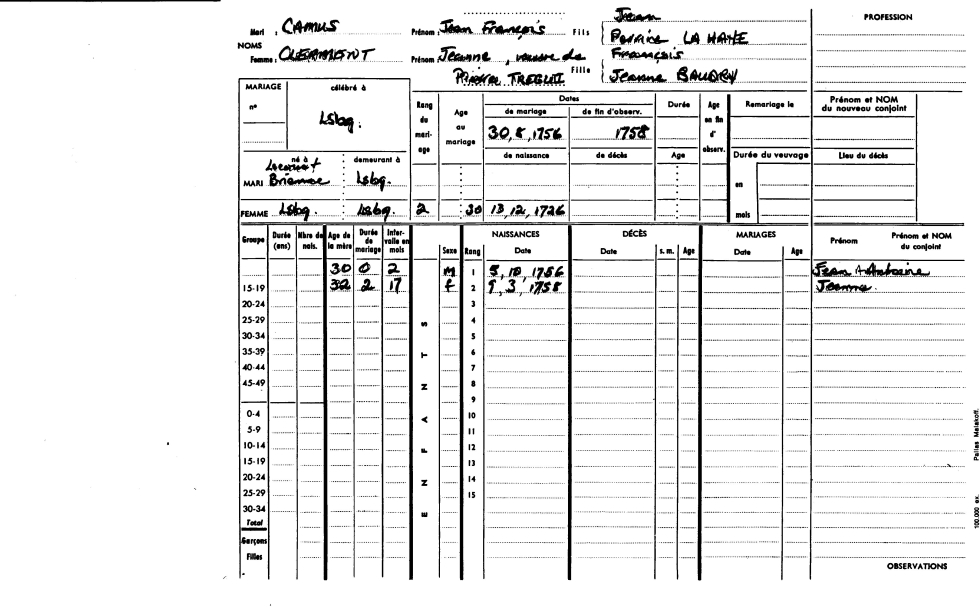 Jean
PROFESSION
Mari : CAMUS Prénom : Jean François Fils Perrine LA HAYE
NOMS François
Femme : CLERMENT Prénom Jeanne , veuve de Fille Jeanne BAUDRY
Pierre TREGUIL
MARIAGE célébré à
n° Lsbg.
Rang du mariage Age au mariage Dates Durée Age en fin d'observ. Remariage le Prénom et NOM du nouveau conjoint
de mariage de fin d'observ.
30, 8, 1756 1758
né à demeurant à de naissance de décès Age Durée du veuvage Lieu du décès
MARI Brience Lsbg. en
FEMME Lsbg. Lsbg. 2 30 13, 12, 1726 mois
Groupe Durée (ans) Nbre de nais. Age de la mère Durée de mariage Intervalle en mois Sexe Rang NAISSANCES DÉCÈS MARIAGES Prénom Prénom et NOM du conjoint
Date Date s. m. Age Date Age
30 0 2 M 1 5, 10, 1756 Jean Antoine
15-19 32 2 17 f 2 9, 3, 1758 Jeanne.
20-24 3
25-29 4
30-34 5
35-39 6
40-44 7
45-49 8
9
0-4 10
5-9 11
10-14 12
15-19 13
20-24 14
25-29 15
30-34
Total
Garçons
Filles
ENFANTS
OBSERVATIONS
100.000 ex. Pallas Malakoff.